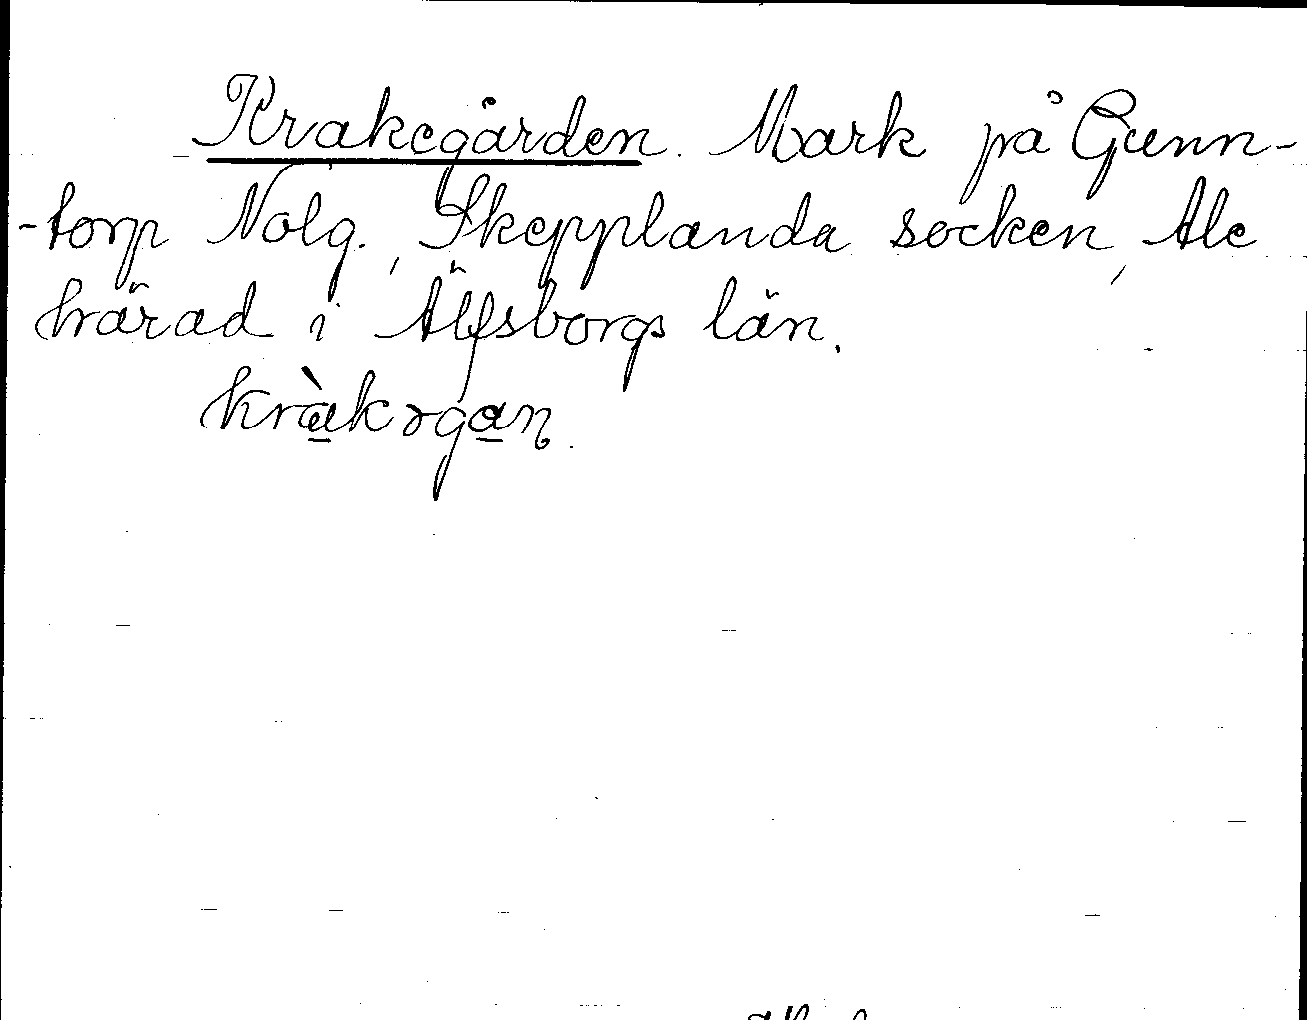 Krakegården. Mark på Gunn-
-torp Nolg., Skepplanda socken, Ale
härad i Älfsborgs län.
kràkəgan.